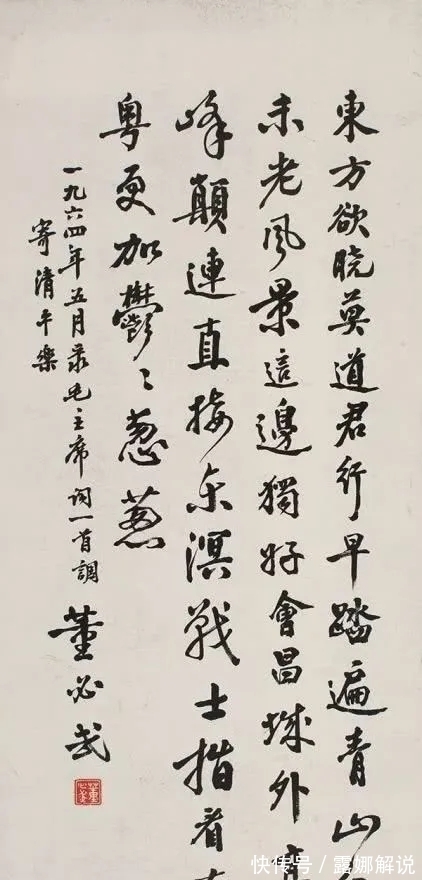 東方欲晓莫道君行早踏遍青山
未老風景這邊獨好會昌城外
峰顛連直接东溟戰士指看
粤更加鬱〻葱葱
一九六四年五月录毛主席词一首調
寄清平樂
董必武
快传号/露娜解说